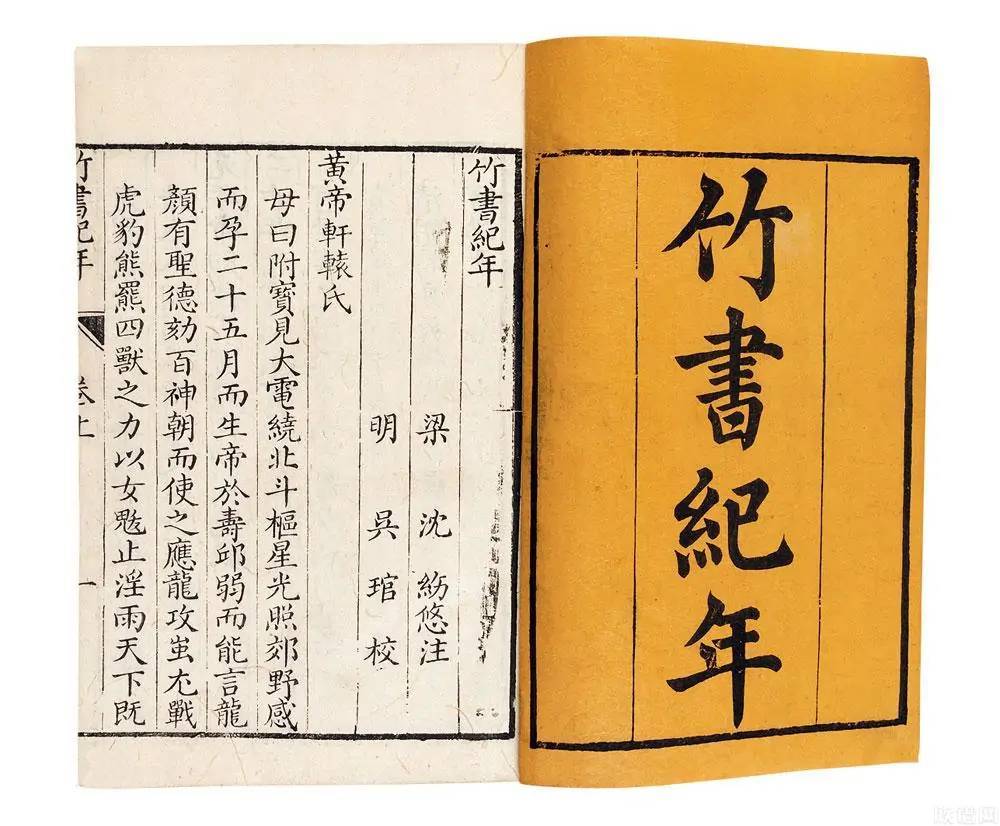 竹書紀年
竹書紀年
梁 沈 紛悠注
明 吳 琯 校
黄帝軒轅氏
母曰附寶見大電繞北斗樞星光照郊野感
而孕二十五月而生帝於壽邱弱而能言龍
顏有聖德劾百神朝而使之應龍攻蚩尤戰
虎豹熊羆四獸之力以女魃止淫雨天下既
竹書紀年 卷上 一
族谱网